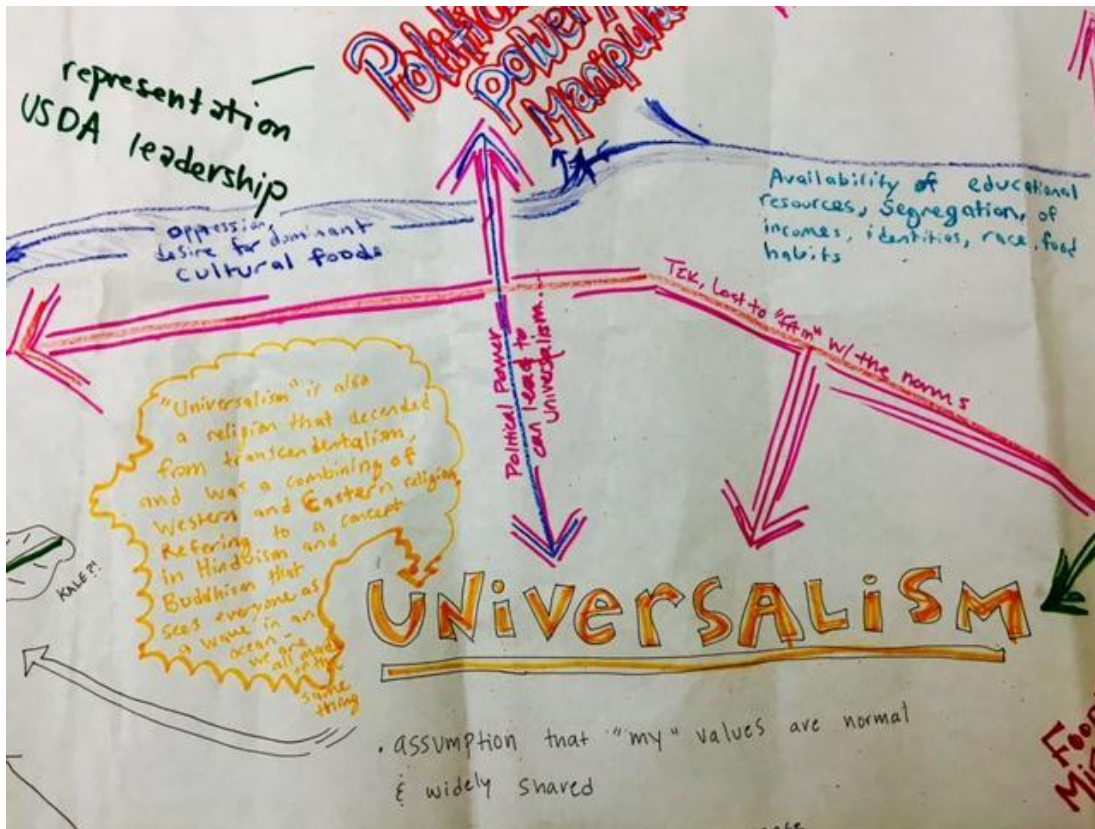 representation
USDA leadership
Power
oppression,
desire for dominant
cultural foods
Availability of educational
resources, Segregation, of
incomes, identities, race, food
habits
Political power
can lead to
universalism...
w/ the norms
"Universalism" is also
a religion that decended
from transcendentalism,
and was a combining of
Western and Eastern religion
Refering to a concept
in Hinduism and
Buddhism that
sees everyone as
a wave in an
ocean -
we are
all made
of the
same
thing
KALE?!
UNIVERSALISM
• assumption that "my" values are normal
& widely shared